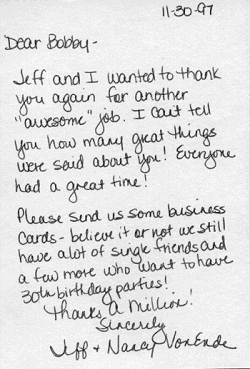 11-30-97
Dear Bobby-
Jeff and I wanted to thank
you again for another
"awesome" job. I can't tell
you how many great things
were said about you! Everyone
had a great time!
Please send us some business
cards - believe it or not we still
have alot of single friends and
a few more who want to have
30th birthday parties!
Thanks A Million!
Sincerely
Jeff + Nancy VonEnde